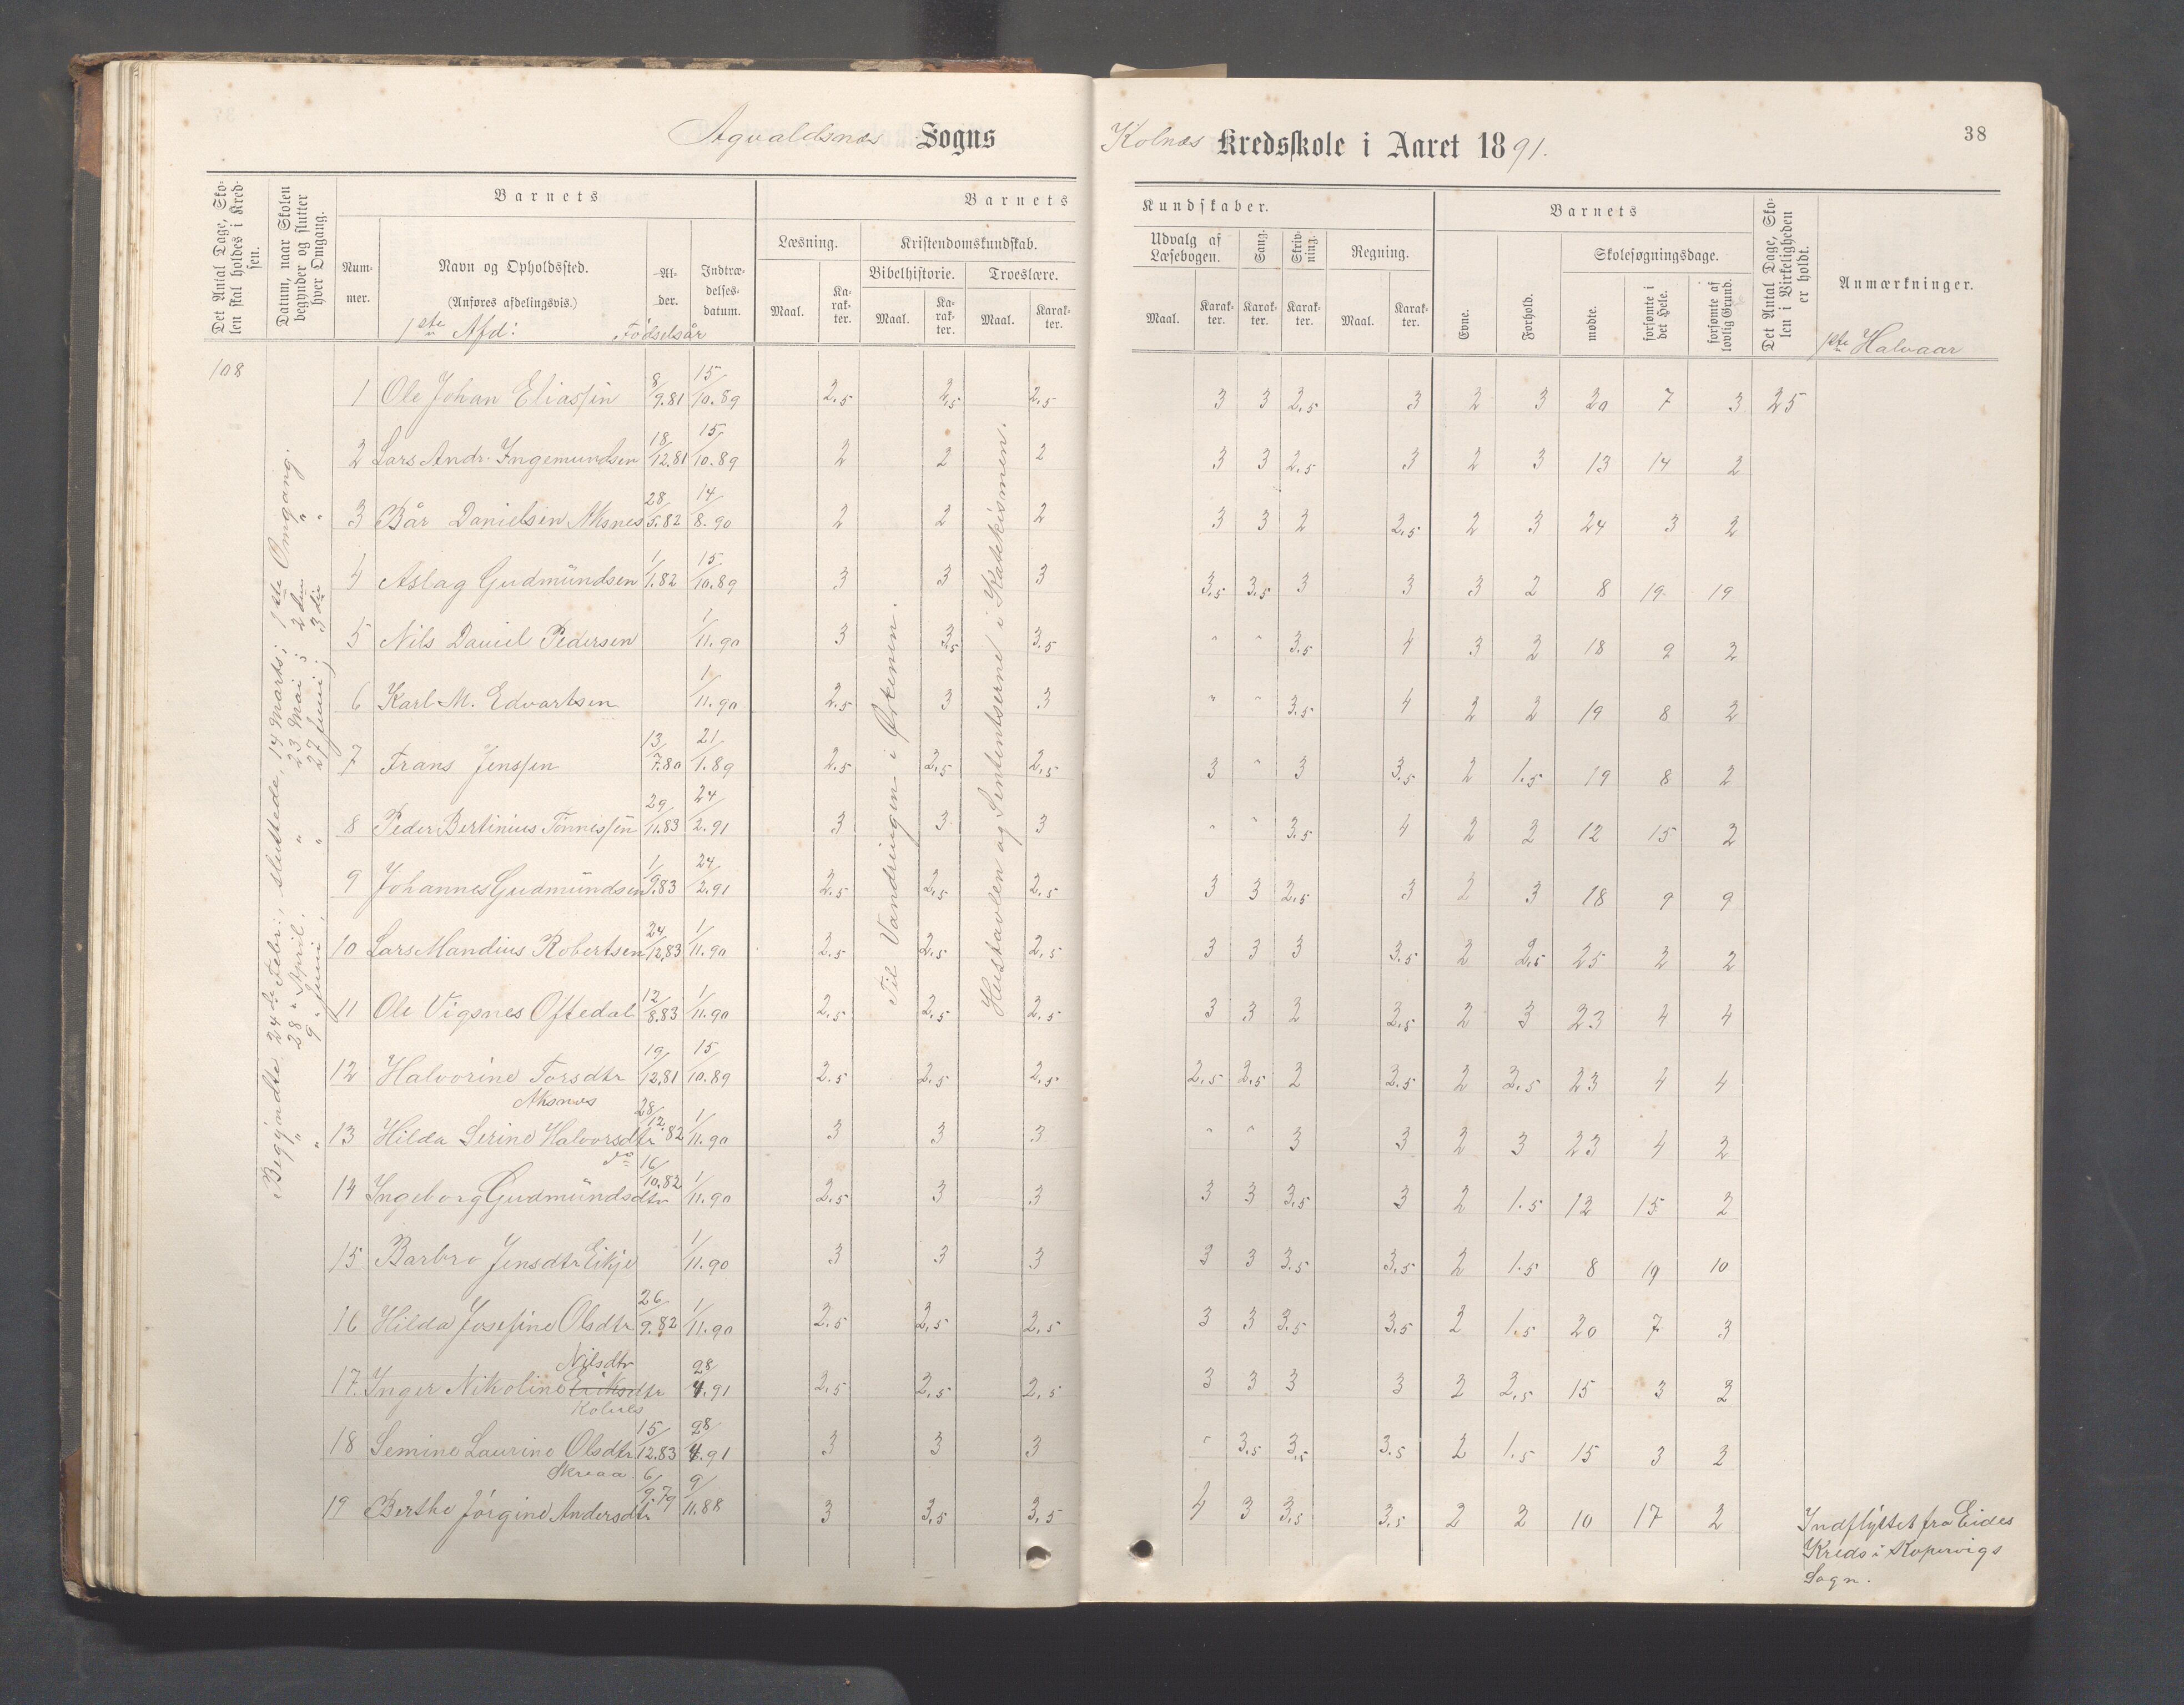 Agvaldsnæs Sogns
Kolnæs Kredsskole i Aaret 1891.
38
Det Antal Dage, Skolen skal holdes i Kredsen.
Datum, naar Skolen begynder og slutter hver Omgang.
Barnets
Nummer.
Navn og Opholdssted.
(Anføres afdelingsvis.)
1ste Afd:
Alder.
Fødselsår
Indtrædelsesdatum.
Barnets
Kundskaber.
Læsning.
Maal.
Karakter.
Kristendomskundskab.
Bibelhistorie.
Maal.
Karakter.
Troeslære.
Maal.
Karakter.
Udvalg af Læsebogen.
Maal.
Karakter.
Sang.
Karakter.
Skrivning.
Karakter.
Regning.
Maal.
Karakter.
Barnets
Evne.
Forhold.
Skolesøgningsdage.
mødte.
forsømte i det Hele.
forsømte af lovlig Grund.
Det Antal Dage, Skolen i Virkeligheden er holdt.
Anmærkninger.
1ste Halvaar
108
Begyndte 24de Febr:, sluttede 14 Marts; 1ste Omgang.
" 28 " April. " 23 Mai; 2den "
" 9 " Juni, " 27 Juni; 3die "
Til Vandringen i Ørkenen.
Hustavlen og Sententserne i Katekismen.
1 Ole Johan Eliassen 8/9.81 15/10.89 2.5 2,5 2,5 3 3 2,5 3 2 3 20 7 3 25
2 Lars Andr. Ingemundsen 18/12.81 15/10.89 2 2 2 3 3 2,5 3 2 3 13 14 2
3 Bår Danielsen Aksnes 28/5.82 14/8.90 2 2 2 3 3 2 2,5 2 3 24 3 2
4 Aslag Gudmündsen 1/1.82 15/10.89 3 3 3 3,5 3.5 3 3 3 2 8 19 19
5 Nils Daniel Pedersen 1/11.90 3 3,5 3,5 " " 3.5 4 3 2 18 9 2
6 Karl M. Edvartsen 1/11.90 2.5 3 3 " " 3.5 4 2 2 19 8 2
7 Frans Jenssen 13/7.80 21/1.89 2.5 2,5 2,5 3 " 3 3,5 2 1.5 19 8 2
8 Peder Bertinius Tönnessen 29/11.83 24/2.91 3 3 3 " " 3.5 4 2 2 12 15 2
9 Johannes Gudmündsen 1/9.83 24/2.91 2,5 2,5 2,5 3 3 2,5 3 2 3 18 9 9
10 Lars Mandius Robertsen 24/12.83 1/11.90 2.5 2,5 2,5 3 3 3 3,5 2 2,5 25 2 2
11 Ole Vigsnes Oftedal 12/8.83 1/11.90 2,5 2,5 2,5 3 3 2 2,5 2 3 23 4 4
12 Halvorine Torsdtr 19/12.81 15/10.89 2.5 2,5 2,5 2,5 2,5 2 2,5 2 2,5 23 4 4
Aksnæs
13 Hilda Serine Halvorsdtr 28/12.82 1/11.90 3 3 3 " " 3 3 2 3 23 4 2
do
14 Ingeborg Gudmündsdtr 16/10.82 1/11.90 2,5 3 3 3 3 3,5 3 2 1.5 12 15 2
15 Barbro Jensdtr Eikje 1/11.90 3 3 3 3 3 3.5 3,5 2 1.5 8 19 10
16 Hilda Josefine Olsdtr 26/9.82 1/11.90 2.5 2,5 2,5 3 3 3.5 3,5 2 1.5 20 7 3
Nilsdtr
17. Inger Nikoline Eriksdtr 28/4.91 2,5 2,5 2,5 3 3 3 3 2 2,5 15 3 2
Kolnes
18 Semine Laurine Olsdtr 15/12.83 28/4.91 3 3 3 " 3.5 3,5 3.5 2 1.5 15 3 2
Skreaa
19 Berthe Jörgine Andersdtr 6/9.79 9/11.88 3 3,5 3,5 4 3 3,5 3,5 2 2 10 17 2 Indflyttet fra Eides
Kreds i Kopervigs
Sogn.